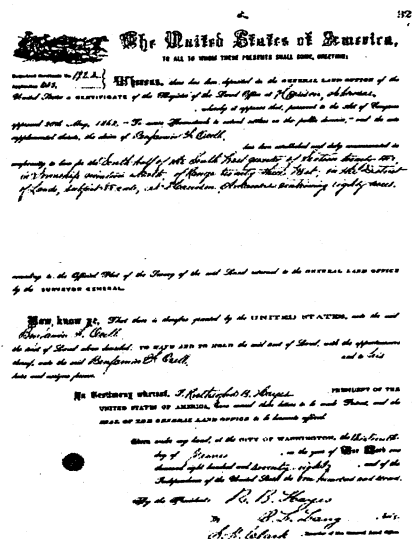 32
The United States of America,
TO ALL TO WHOM THESE PRESENTS SHALL COME, GREETING:
Homestead Certificate No. 1922
Application
Whereas, there has been deposited in the GENERAL LAND OFFICE of the
United States a CERTIFICATE of the Register of the Land Office at Harrison, Arkansas,
whereby it appears that, pursuant to the Act of Congress
approved 20th May, 1862, "To secure Homesteads to actual settlers on the public domain," and the acts
supplemental thereto, the claim of Benjamin F.
has been established and duly consummated in
conformity to law for the South half of the South West quarter of Section twenty
in Township nineteen North of Range twenty three West in the District
of Lands subject to sale at Harrison Arkansas containing eighty acres.
according to the Official Plat of the Survey of the said Land returned to the GENERAL LAND OFFICE
by the SURVEYOR GENERAL.
Now, know ye, That there is therefore granted by the UNITED STATES, unto the said
Benjamin F.
the tract of Land above described; TO HAVE AND TO HOLD the said tract of Land, with the appurtenances
thereof, unto the said Benjamin F. and to his
heirs and assigns forever.
In Testimony whereof, I, Rutherford B. Hayes, PRESIDENT OF THE
UNITED STATES OF AMERICA, have caused these letters to be made Patent, and the
SEAL OF THE GENERAL LAND OFFICE to be hereunto affixed.
Given under my hand, at the CITY OF WASHINGTON, the thirteenth
day of, in the year of Our Lord one
thousand eight hundred and seventy eighty, and of the
Independence of the United States the one hundred and second.
By the President: R. B. Hayes
By, Sec'y.
S. W. Clark, Recorder of the General Land Office.